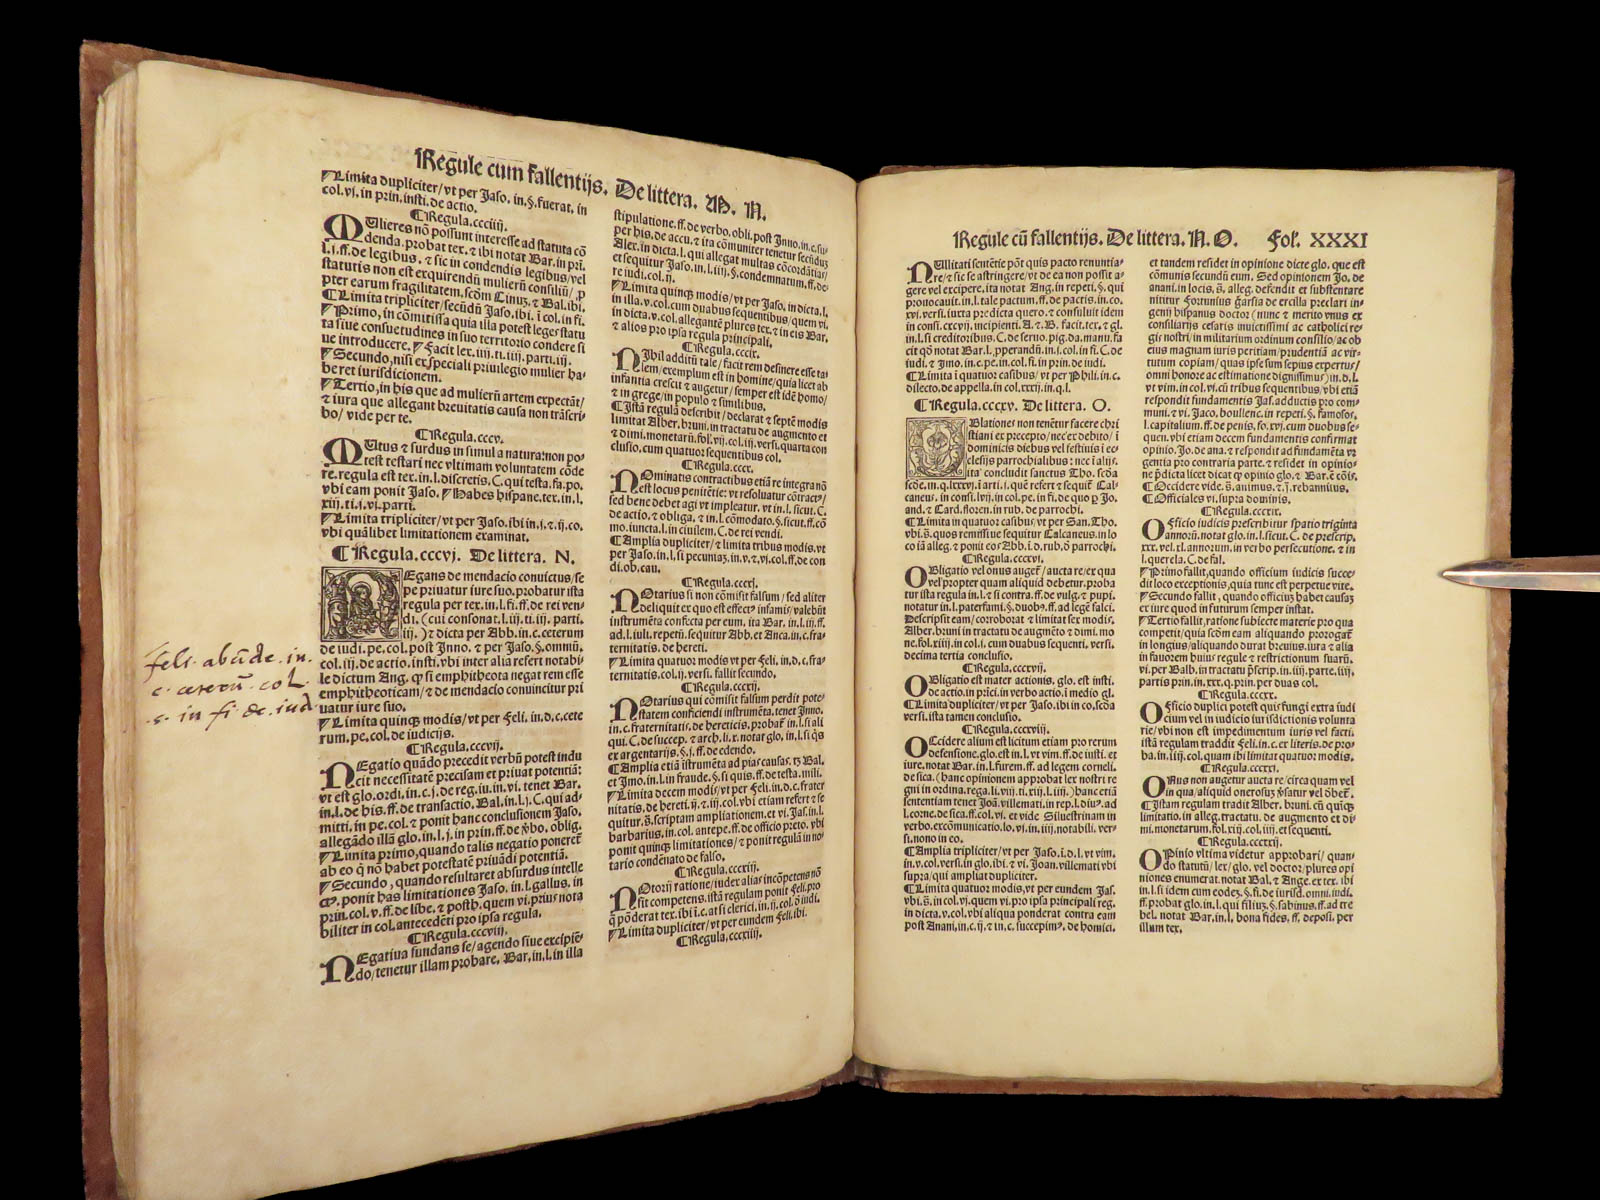 Regule cum fallentijs. De littera. M. N.
⁌Limita dupliciter/vt per Jaso. in.§.fuerat. in
col.vj. in prin.insti.de actio.
⁌Regula.ccciiij.
MUlieres nō possunt interesse ad statuta cō
denda. probat tex. ⁊ ibi notat Bar. in pri.
l.j.ff.de legibus. ⁊ sic in condendis legibus/vel
statutis non est exquirendū mulierū consiliū/ ,p
pter earum fragilitatem. scōm Cinuȝ. ⁊ Bal. ibi.
⁌Limita tripliciter/secūdū Jaso. ibi. ī col. in fi.
⁌Primo, in cōmitissa quia illa potest leges statu
ta siue consuetudines in suo territorio condere si
ue introducere. ⁌Facit lex.iiij.ti.iij.parti.ij.
⁌Secundo, nisi ex speciali priuilegio mulier ha-
beret iurisdicionem.
⁌Tertio, in his que ad mulierū artem expectāt/
⁊ iura que allegant breuitatis causa non trāscri-
bo/ vide per te.
⁌Regula.cccv.
MUtus ⁊ surdus in simul a natura: non po-
test testari nec vltimam voluntatem cōde
re. regula est tex. in.l. discretis. C. qui testa. fa. po.
vbi eam ponit Jaso. ⁌Habes hispane. tex. in.l.
xiij.ti.j.vj.parti.
⁌Limita tripliciter/vt per Jaso. ibi in.j.⁊.ij.co.
vbi quālibet limitationem examinat.
⁌Regula.cccvj. De littera. N.
NEgans de mendacio conuictus/se
pe priuatur iure suo. probatur ista
regula per tex. in.l.fi.ff. de rei ven-
di. (cui consonat.l.iij.ti.iij.parti.
iij.) ⁊ dicta per Abb. in.c. ceterum
de iudi. pe. col. post Jnno. ⁊ per Jaso. §. omniū.
col.iij. de actio. insti. vbi inter alia refert notabi-
le dictum Ang. ꝙ si emphitheota negat rem esse
emphitheoticam/⁊ de mendacio conuincitur pri
uatur iure suo.
⁌Limita quinqȝ modis/vt per Feli. in.d.c. cete
rum. pe. col. de iudicijs.
⁌Regula.cccvij.
NEgatio quādo precedit verbū potest indu
cit necessitatē precisam et priuat potentiā:
vt est glo. ordi. in.c.j. de reg. iu. in.vj. tenet Bar.
in.l. de his. ff. de transactio. Bal. in.l.j. C. qui ad-
mitti. in pe. col. ⁊ ponit hanc conclusionem Jaso.
allegādo illā glo. in.l.j. in prin. ff. de v̄bo. oblig.
⁌Limita primo, quando talis negatio poneret̄
ab eo q̄ nō habet potestatē priuādi potentiā.
⁌Secundo, quando resultaret absurdus intelle
ctꝰ. ponit has limitationes Jaso. in.l. gallus. in
prin. col.v. ff. de libe. ⁊ postb. quem vi. prius nota
biliter in col. antecedēti pro ipsa regula.
⁌Regula.cccviij.
NEgatiua fundans se/agendo siue excipiē-
do/tenetur illam probare. Bar. in.l. in illa
feli. abūde. in.
c. ceterū. col.
.s. in fi. de. iud
stipulatione. ff. de verbo. obli. post Jnno. in.c. su-
per his. de accu. ⁊ ita cōmuniter tenetur secūdȝ
Alex. in dicta.l. qui allegat multas cōcordātias/
et sequitur Jaso. in.l.iiij.§. condemnatum. ff. de
re iudi. col.ij.
⁌Limita quinqȝ modis/vt per Jaso. in dicta.l.
in illa.v. col. cum duabus sequentibus/quem vi.
in dicta.v. col. allegantē plures tex. ⁊ in eis Bar.
⁊ alios pro ipsa regula principali.
⁌Regula.cccix.
NIhil additū tale/facit rem desinere esse ta
lem/exemplum est in homine/quia licet ab
infantia crescit ⁊ augetur/semper est idē homo/
⁊ in grege/in populo ⁊ similibus.
⁌Jstā regulā describit/declarat ⁊ septē modis
limitat Alber. bruni. in tractatu de augmento et
⁊ dimi. monetarū. fol. vij. col. iij. versi. quarta con
clusio. cum quatuor sequentibus col.
⁌Regula.cccx.
NOminatis contractibus etiā re integra nō
est locus penitētie: vt resoluatur cōtractꝰ/
sed bene debet agi vt impleatur. vt in.l. sicut. C.
de actio. ⁊ obliga. ⁊ in.l. cōmodato.§. sicut. ff. cō
mo. iuncta.l. in ciuilem. C. de rei vendi.
⁌Amplia dupliciter/⁊ limita tribus modis. vt
per Jaso. in.l. si pecuniaȝ. in.v. ⁊.vj. col. ff. de con
di. ob. cau.
⁌Regula.cccxj.
NOtarius si non cōmisit falsum/sed aliter
deliquit ex quo est effectꝰ infamis/valebūt
instrumēta confecta per eum. ita Bar. in.l.iij. ff.
ad.l. iuli. repetū. sequitur Abb. et Anca. in.c. fra-
ternitatis. de hereti.
⁌Limita quatuor modis vt per Feli. in.d.c. fra-
ternitatis. col.ij. versi. fallit secundo.
⁌Regula.cccxij.
NOtarius qui cōmisit falsum perdit pote-
statem conficiendi instrumēta. tenet Jnno.
in.c. fraternitatis. de hereticis. probat̄ in.l. si ali
qui. C. de succep. ⁊ arch. li.x. notat glo. in.l. si q̄s
ex argentarijs.§.j. ff. de edendo.
⁌Amplia etiā īstrumēta ad pias causas. tȝ Bal.
et Jmo. in.l. in fraude.§. si quis. ff. de testa. mili.
⁌Limita decem modis/vt per Feli. in.d.c. frater
nitatis. de hereti. ij. ⁊.iij. col. vbi etiam refert ⁊ se
quitur.s. scriptam ampliationem. et vi. Jas. in.l.
barbarius. in col. antepe. ff. de officio preto. vbi
ponit quinqȝ limitationes/⁊ ponit regulā in no-
tario condēnato de falso.
⁌Regula.cccxiij.
NOtorij ratione/iudex alias incōpetens nō
fit competens. istā regulam ponit Feli. pro
q̄ pōderat tex. ibi ī.c. at si clerici. in.ij. col. ō iudi.
⁌Limita dupliciter/vt per eundem Feli. ibi.
⁌Regula.cccxiiij.
Regule cū fallentijs. De littera. N. O. Fol'. XXXI
NUllitati sentētie pōt quis pacto renuntia-
re/⁊ sic se astringere/vt de ea non possit a-
gere vel excipere. ita notat Ang. in repeti.§. qui
prouocauit. in.l. tale pactum. ff. de pactis. in. co.
xvj. versi. iuxta predicta quero. ⁊ consuluit idem
in consi. cxcvij. incipienti. A. ⁊. B. facit. tex. ⁊ gl.
in.l. si creditoribus. C. de seruo. pig. da. manu. fa
cit qō notat Bar. l. pperandū. in.j. col. in fi. C. de
iudi. ⁊ Jmo. in.c. pe. in. col. fi. in prin. de iudi.
⁌Limita ī quatuor casibus/vt per Phili. in.c.
dilecto. de appella. in col. xxij. in.q.l.
⁌Regula.cccxv. De littera. O.
OBlationes non tenētur facere chri
stiani ex precepto/nec ex debito/ī
dominicis diebus vel festiuis ī ec
clesijs parrochialibus: nec ī alijs.
ita concludit sanctus Tho. scōa
scōe. in.q. lxxxvj. ī arti.j. quē refert ⁊ sequit̄ Cal-
caneus. in consi. lvij. in col. pe. in fi. de quo ꝑ Jo.
and. ⁊ Card. floren. in rub. de parrochi.
⁌Limita in quatuor casibus/vt per San. Tho.
vbi.s. quos remissiue sequitur Calcaneus. in lo
co iā alleg. ⁊ ponit eos Abb. ī.d. rub. ō parrochi.
⁌Regula.cccxvj.
OBligatio vel onus auget̄/aucta re/ex qua
vel propter quam aliquid debetur. proba
tur ista regula in.l. ⁊ si contra. ff. de vulg. ⁊ pupi.
notatur in.l. paterfami.§. duobꝰ. ff. ad legē falci.
Descripsit eam/corroborat ⁊ limitat sex modis.
Alber. bruni in tractatu de augmēto ⁊ dimi. mo
ne. fol. xiiij. in col.j. cum duabus sequenti. versi.
decima tertia conclusio.
⁌Regula.cccxvij.
OBligatio est mater actionis. glo. est insti.
de actio. in prīci. in verbo actio. ī medio gl.
⁌Limita dupliciter/vt per Jaso. ibi in co. scōa
versi. ista tamen conclusio.
⁌Regula.cccxviij.
OCcidere alium est licitum etiam pro rerum
defensione. glo. est in.l. vt vim. ff. de iusti. et
iure. notat Bar. in.l. furem. ff. ad legem corneli.
de sica. (hanc opinionem approbat lex nostri re
gni in ordina. rega. li. viij. ti. xiij. l. iiij.) hanc etiā
sententiam tenet Joā. villemati. in rep. l. diuꝰ. ad
l. corne. de sica. ff. col.vj. et vide Siluestrinam in
verbo. excōmunicatio. lo. vj. in.iiij. notabili. ver-
si. nono in eo.
⁌Amplia tripliciter/vt per Jaso. ī.d.l. vt vim.
in.v. col. versi. in glo. ibi. ⁊ vi. Joan. villemati vbi
supra/qui ampliat dupliciter.
⁌Limita quatuor modis/vt per eundem Jas.
vbi.s. in col.vj. quem vi. pro ipsa principali reg.
in dicta.v. col. vbi aliqua ponderat contra eam
post Anani. in.c.ij. ⁊ in.c. suscepimꝰ. de homici.
et tandem residet in opinione dicte glo. que est
cōmunis secundū eum. Sed opinionem Jo. de
anani. in locis. s. alleg. defendit et substentare
nititur Fortunius garsia de ercilla preclari in-
genij hispanus doctor (nunc ⁊ merito vnus ex
consiliarijs cesaris inuictissimi ac catholici re-
gis nostri/in militarium ordinum consilio/ac ob
eius magnam iuris peritiam/prudentiā ac vir-
tutum copiam/quas ipse sum sepius expertus/
omni honore ac estimatione dignissimus) in.d.l.
vt vim. in col. vj. cū tribus sequentibus/vbi etiā
respondit fundamentis Jas. adductis pro com-
muni. ⁊ vi. Jaco. boullenc. in repeti.§. famosos.
l. capitalium. ff. de penis. fo. xvj. cum duobus se-
quen. vbi etiam decem fundamentis confirmat
opinio. Jo. de ana. ⁊ respondit ad fundamēta vr
gentia pro contraria parte. ⁊ residet in opinio-
ne p̄dicta licet dicat ꝙ opinio glo. ⁊ Bar. ē cōis.
⁌Occidere vide. s. animus. ⁊.j. rebannitus.
⁌Officiales vi. supra dominis.
⁌Regula.cccxix.
OFficio iudicis prescribitur spatio triginta
annorū. notat glo. in.l. sicut. C. de prescrip.
xxx. vel. xl. annorum. in verbo persecutione. ⁊ in
l. querela. C. de fal.
⁌Primo fallit, quando officium iudicis succe-
dit loco exceptionis, quia tunc est perpetue vite.
⁌Secundo fallit, quando officiuȝ habet causaȝ
ex iure quod in futurum semper instat.
⁌Tertio fallit, ratione subiecte materie pro qua
competit/quia scōm eam aliquando prorogat̄
in longius/aliquando durat breuius. iura ⁊ alia
in fauorem huius regule ⁊ restrictionum suarū.
vi. per Balb. in tractatu p̄scrip. in.iij. parte. iiij.
partis prin. in. xx. q. prin. per duas col.
⁌Regula.cccxx.
OFficio duplici potest quis fungi extra iudi
cium vel in iudicio iurisdictionis volunta
rie/vbi non est impedimentum iuris vel facti.
istā regulam traddit Feli. in.c. ex literis. de pro-
ba. in.iij. col. quam ibi limitat quatuor modis.
⁌Regula.cccxxj.
ONus non augetur aucta re/circa quam vel
in qua/aliquid onerosuȝ v̄satur vel debet̄.
⁌Jstam regulam tradit Alber. bruni. cū quīqȝ
limitatio. in alleg. tractatu. de augmento et di
mi. monetarum. fol. xiij. col. iiij. et sequenti.
⁌Regula.cccxxij.
OPinio vltima videtur approbari/quan-
do statutū/lex/glo. vel doctor/plures opi
niones enumerat. notat Bal. ⁊ Ange. ex tex. ibi
in.l. si idem cum eodeȝ.§. fi. de iurisd. omni. iudi.
ff. probat glo. in.l. qui filiuȝ.§. sabinus. ff. ad tre
bel. notat Bar. in.l. bona fides. ff. deposi. per
illum tex.